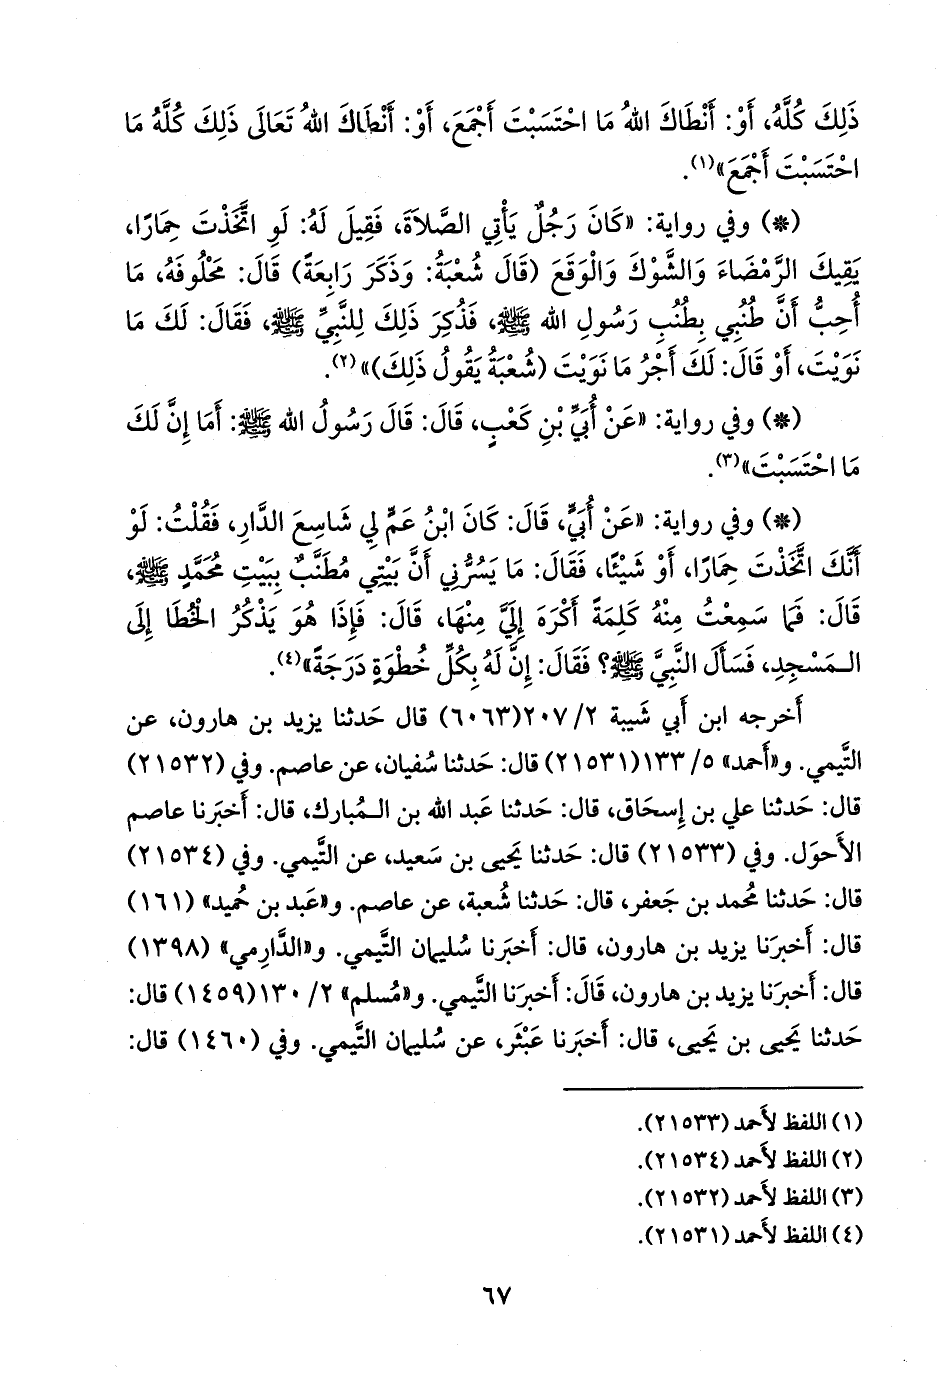 ذَلِكَ كُلَّهُ، أَوْ: أَنْطَاكَ اللهُ مَا احْتَسَبْتَ أَجْمَعَ، أَوْ: أَنْطَاكَ اللهُ تَعَالَى ذَلِكَ كُلَّهُ مَا
احْتَسَبْتَ أَجْمَعَ»(١).
(*) وفي رواية: «كَانَ رَجُلٌ يَأْتِي الصَّلَاةَ، فَقِيلَ لَهُ: لَوِ اتَّخَذْتَ حِمَارًا،
يَقِيكَ الرَّمْضَاءَ وَالشَّوْكَ وَالْوَقَعَ (قَالَ شُعْبَةُ: وَذَكَرَ رَابِعَةً) قَالَ: مَحْلُوفَهُ، مَا
أُحِبُّ أَنَّ طُنُبِي بِطُنُبِ رَسُولِ الله ﷺ، فَذُكِرَ ذَلِكَ لِلنَّبِيِّ ﷺ، فَقَالَ: لَكَ مَا
نَوَيْتَ، أَوْ قَالَ: لَكَ أَجْرُ مَا نَوَيْتَ (شُعْبَةُ يَقُولُ ذَلِكَ)»(٢).
(*) وفي رواية: «عَنْ أُبَيِّ بْنِ كَعْبٍ، قَالَ: قَالَ رَسُولُ الله ﷺ: أَمَا إِنَّ لَكَ
مَا احْتَسَبْتَ»(٣).
(*) وفي رواية: «عَنْ أُبَيٍّ، قَالَ: كَانَ ابْنُ عَمٍّ لِي شَاسِعَ الدَّارِ، فَقُلْتُ: لَوْ
أَنَّكَ اتَّخَذْتَ حِمَارًا، أَوْ شَيْئًا، فَقَالَ: مَا يَسُرُّنِي أَنَّ بَيْتِي مُطَنَّبٌ بِبَيْتِ مُحَمَّدٍ ﷺ،
قَالَ: فَمَا سَمِعْتُ مِنْهُ كَلِمَةً أَكْرَهَ إِلَيَّ مِنْهَا، قَالَ: فَإِذَا هُوَ يَذْكُرُ الْخُطَا إِلَى
الـمَسْجِدِ، فَسَأَلَ النَّبِيَّ ﷺ؟ فَقَالَ: إِنَّ لَهُ بِكُلِّ خُطْوَةٍ دَرَجَةً»(٤).
أَخرجه ابن أبي شَيبة ٢/ ٢٠٧(٦٠٦٣) قال حَدثنا يزيد بن هارون، عن
التَّيمي. و«أَحمد» ٥/ ١٣٣(٢١٥٣١) قال: حَدثنا سُفيان، عن عاصم. وفي (٢١٥٣٢)
قال: حَدثنا علي بن إِسحاق، قال: حَدثنا عَبد الله بن الـمُبارك، قال: أَخبَرنا عاصم
الأَحوَل. وفي (٢١٥٣٣) قال: حَدثنا يَحيى بن سَعيد، عن التَّيمي. وفي (٢١٥٣٤)
قال: حَدثنا مُحمد بن جَعفر، قال: حَدثنا شُعبة، عن عاصم. و«عَبد بن حُميد» (١٦١)
قال: أَخبَرَنا يزيد بن هارون، قال: أَخبَرنا سُليمان التَّيمي. و«الدَّارِمي» (١٣٩٨)
قال: أَخبَرَنا يزيد بن هارون، قَالَ: أَخبَرَنا التَّيمي. و«مُسلم» ٢/ ١٣٠(١٤٥٩) قال:
حَدثنا يَحيى بن يَحيى، قال: أَخبَرنا عَبْثَر، عن سُليمان التَّيمي. وفي (١٤٦٠) قال:
(١) اللفظ لأَحمد (٢١٥٣٣).
(٢) اللفظ لأَحمد (٢١٥٣٤).
(٣) اللفظ لأَحمد (٢١٥٣٢).
(٤) اللفظ لأَحمد (٢١٥٣١).
٦٧